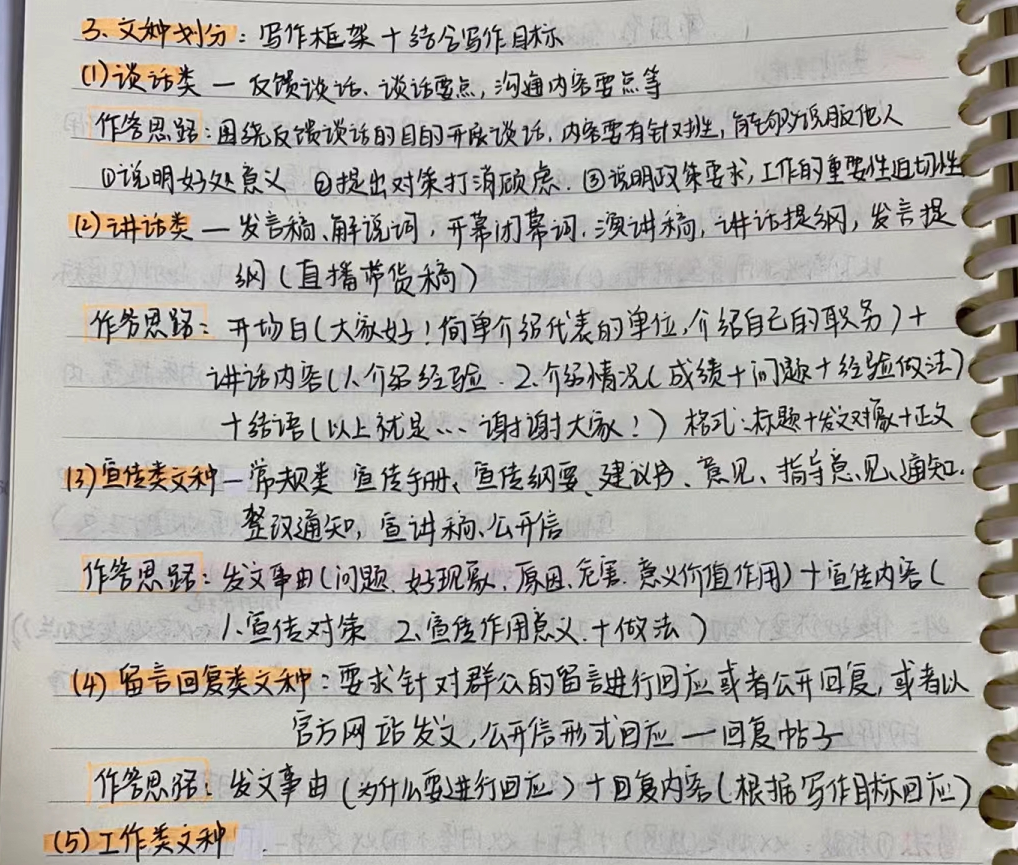 3、文种划分：写作框架＋结合写作目标
(1)谈话类 — 反馈谈话、谈话要点，沟通内容要点等
作答思路：围绕反馈谈话的目的开展谈话，内容要有针对性，能够说服他人
①说明好处意义 ②提出对策打消顾虑．③说明政策要求，工作的重要性迫切性
(2)讲话类 — 发言稿、解说词，开幕闭幕词，演讲稿，讲话提纲，发言提
纲（直播带货稿）
作答思路：开场白（大家好！简单介绍代表的单位，介绍自己的职务）＋
讲话内容（1、介绍经验．2、介绍情况（成绩＋问题＋经验做法）
＋结语（以上就是… 谢谢大家！） 格式：标题＋发文对象＋正文
(3)宣传类文种 — 常规类 宣传手册、宣传纲要、建议书、意见、指导意见、通知．
整改通知，宣讲稿、公开信
作答思路：发文事由（问题．好现象．原因、危害．意义价值作用）＋宣传内容（
1、宣传对策 2、宣传作用意义．＋做法）
(4)留言回复类文种：要求针对群众的留言进行回应或者公开回复，或者以
官方网站发文，公开信形式回应 — 回复帖子
作答思路：发文事由（为什么要进行回应）＋回复内容（根据写作目标回应）
(5)工作类文种